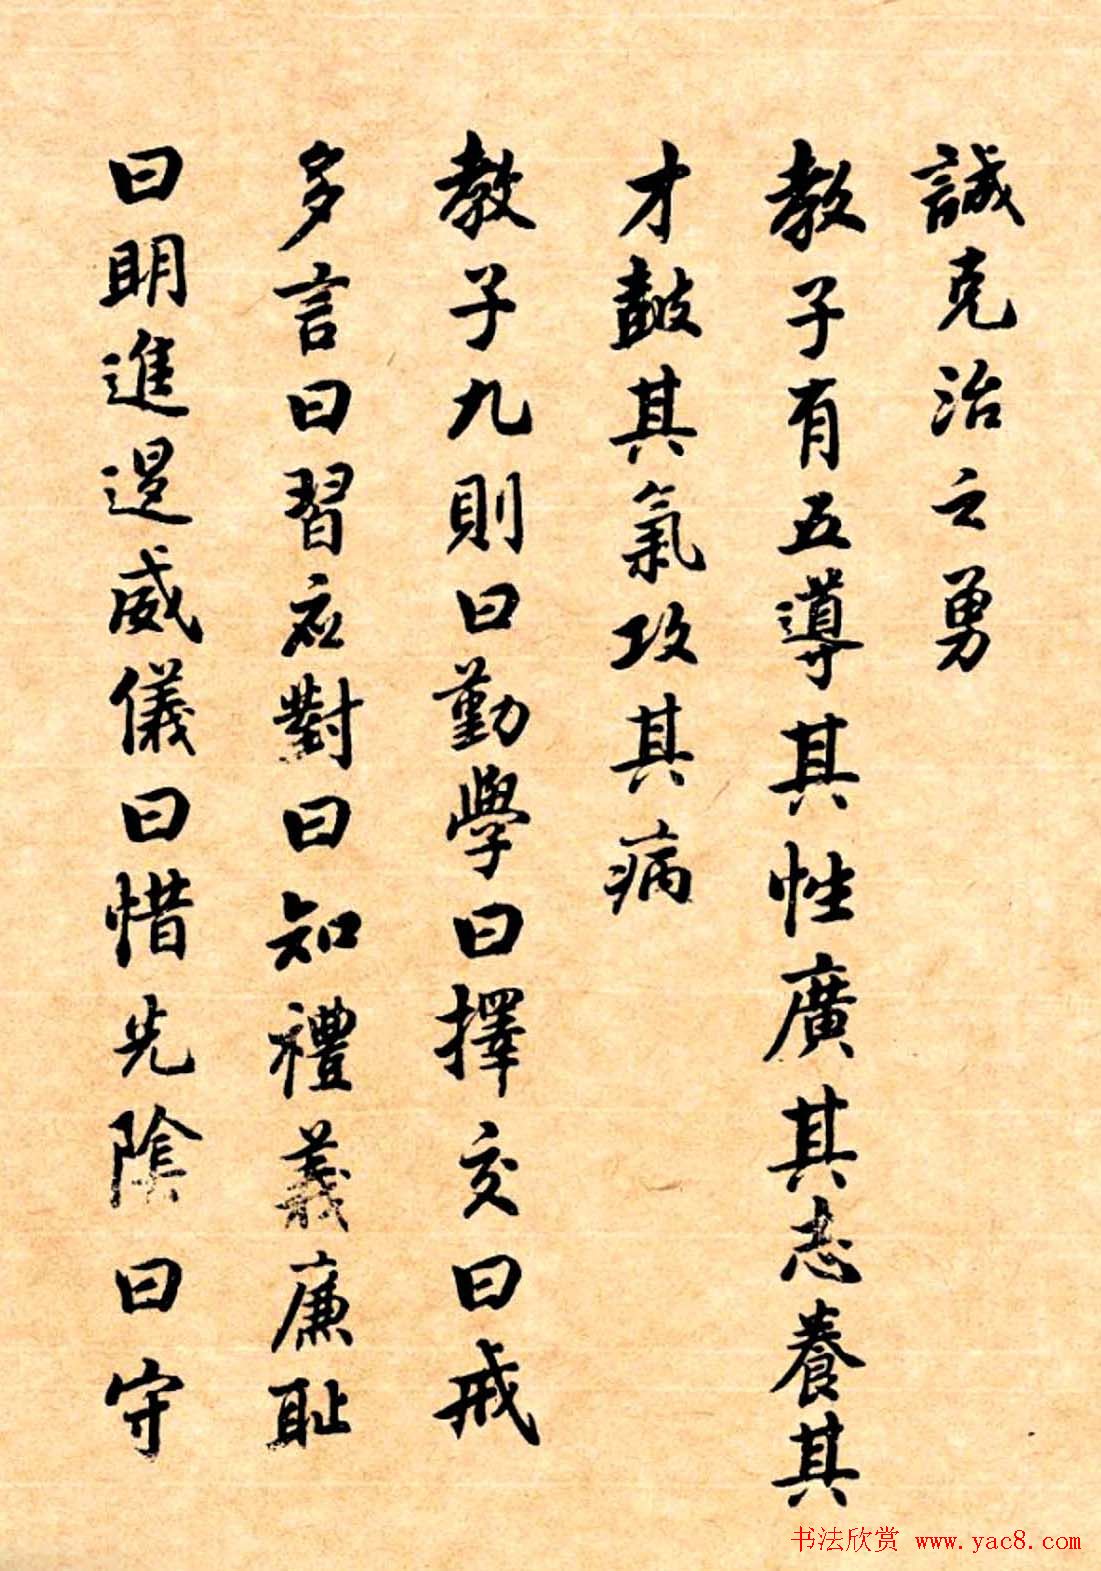 誠克治之勇
教子有五導其性廣其志養其
才鼓其氣攻其病
教子九則曰勤學曰擇交曰戒
多言曰習應對曰知禮義廉耻
曰明進退威儀曰惜光陰曰守
书法欣赏 www.yac8.com